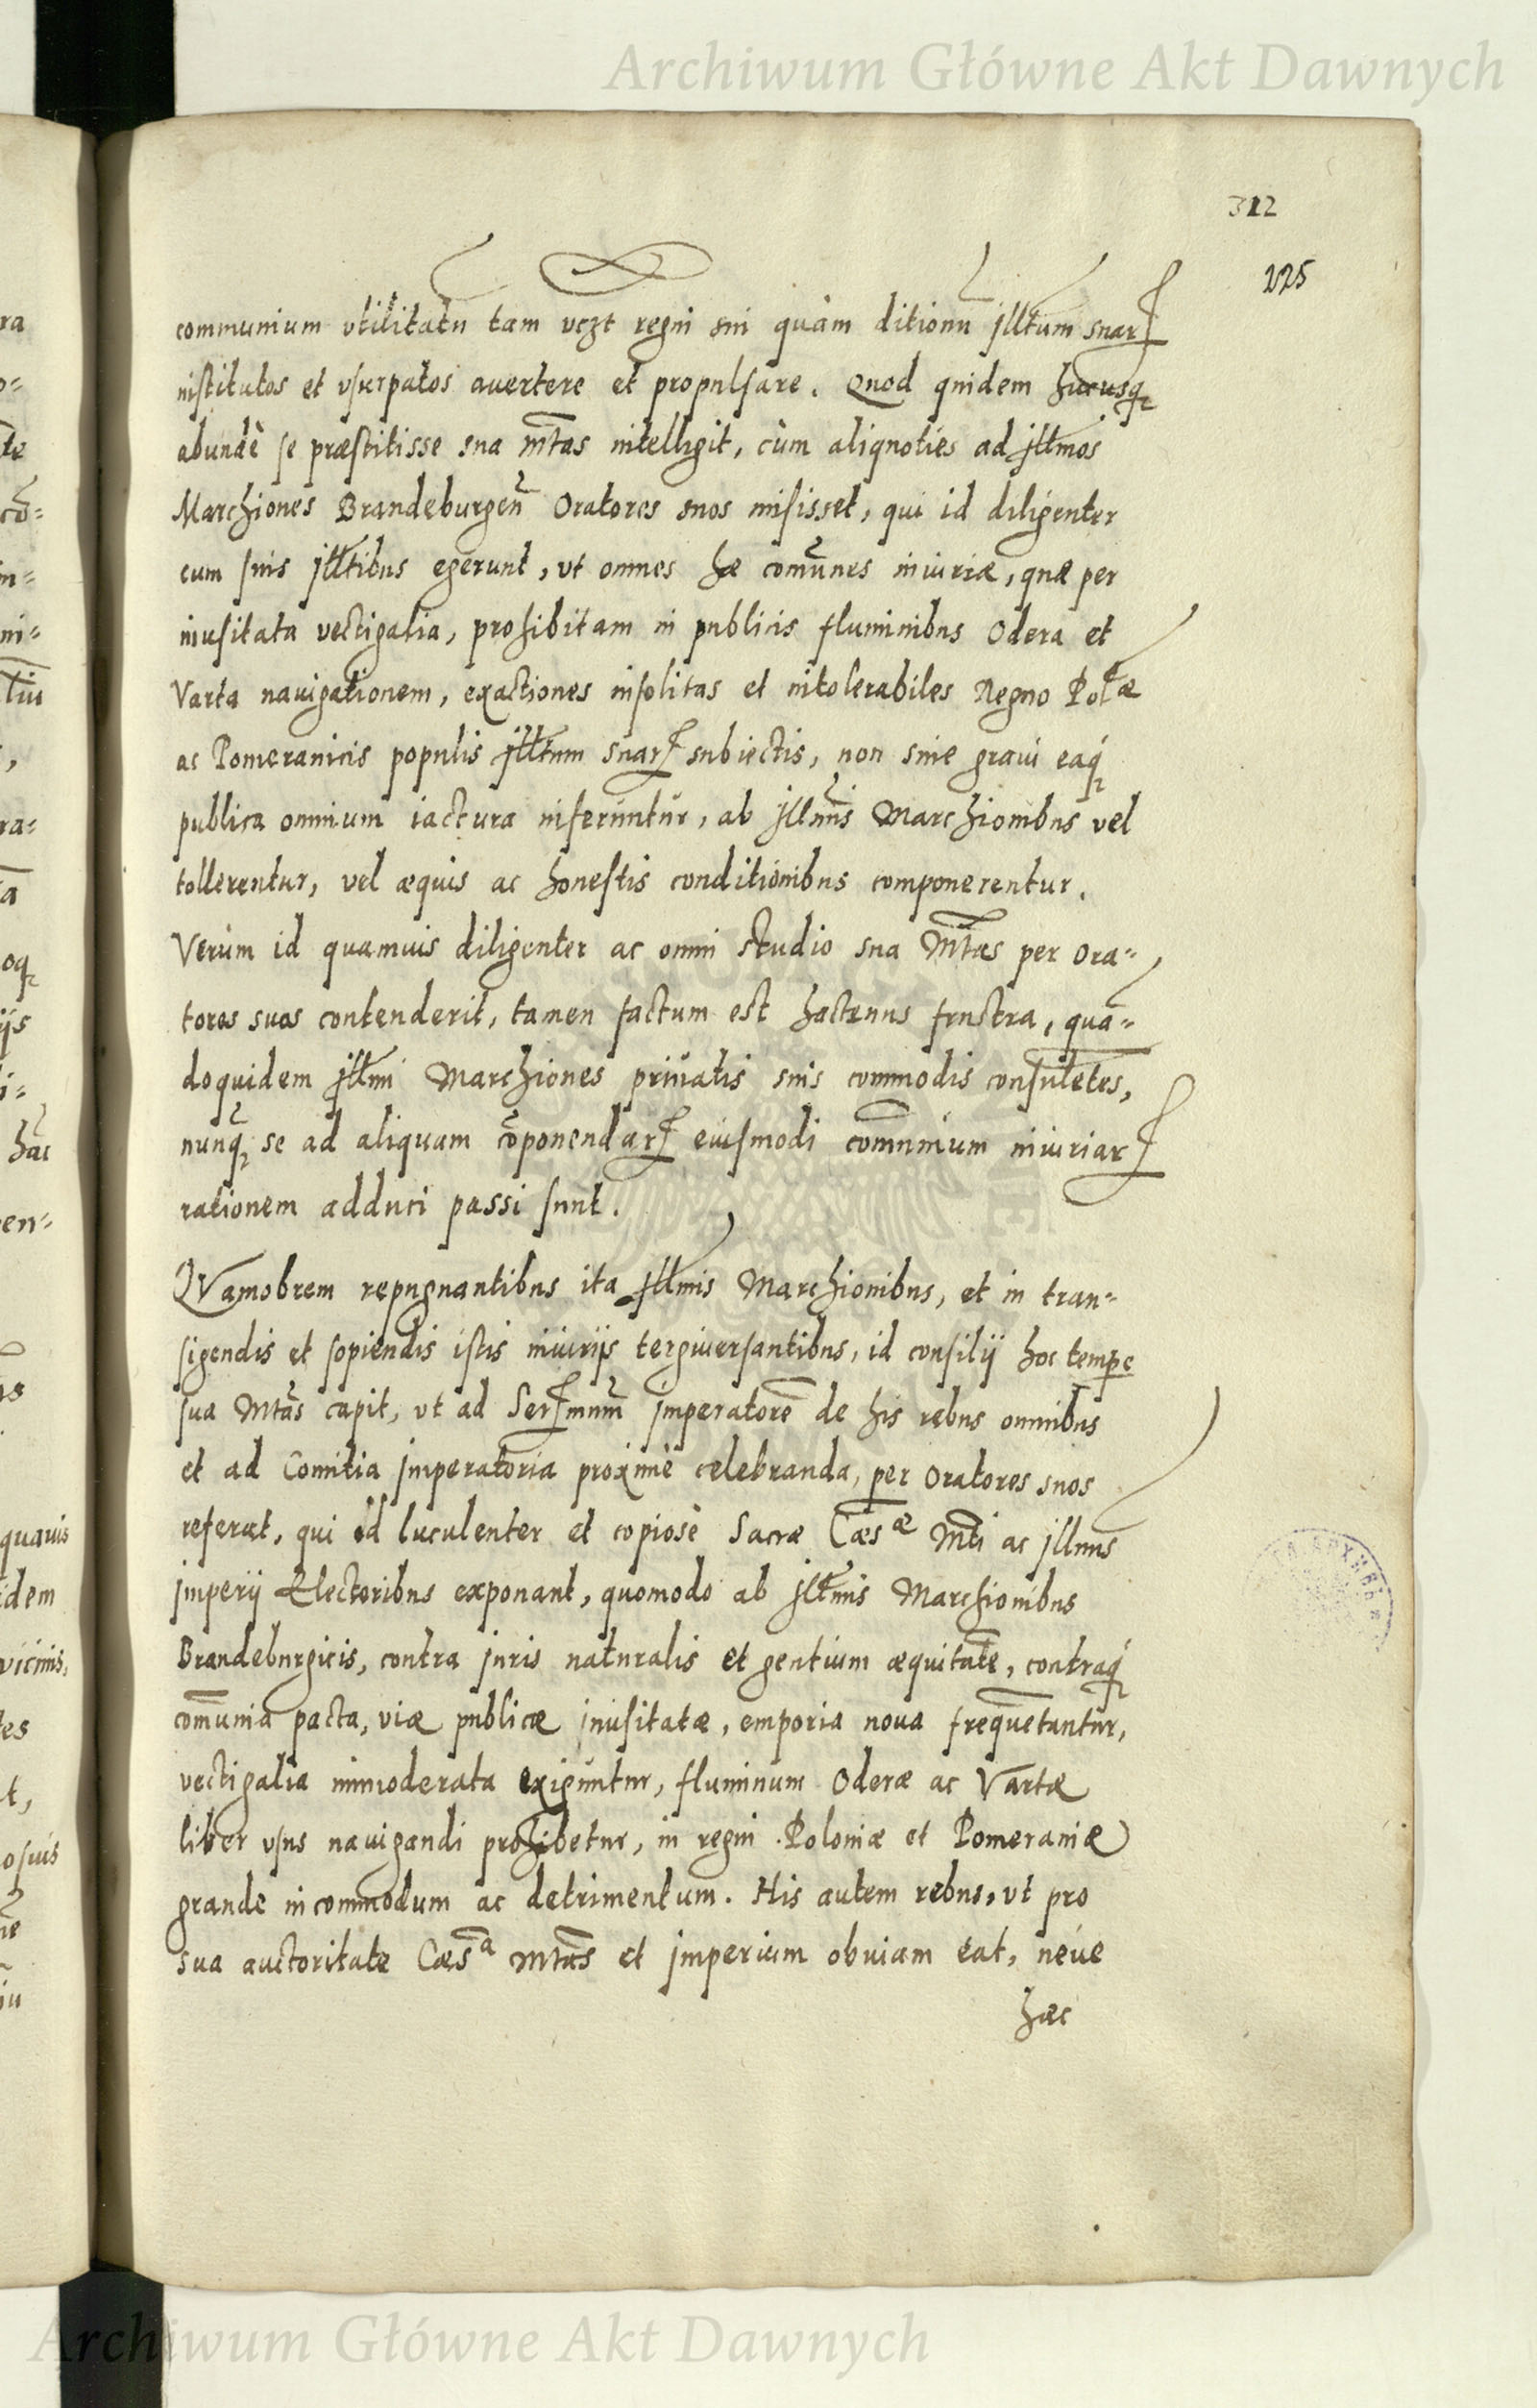 Archiwum Główne Akt Dawnych
312
communium vtilitatū tam regni sui quàm ditionū jlltum suarꝝ
institutos et vsurpatos auertere et propulsare. Quod quidem hucusqꝫ
abundè se præstitisse sua Mtas intelligit, cùm aliquoties ad jllmos
Marchiones Brandeburgeñ Oratores suos misisset, qui id diligenter
cum suis jlltibus egerunt, vt omnes hæ comūnes iniuriæ, quæ per
inusitata vectigalia, prohibitam in publicis fluminibus Odera et
Varta nauigationem, exactiones insolitas et intolerabiles Regno Polæ
ac Pomeranicis populis jlltum suarꝝ subiectis, non sine graui eaqꝫ
publica omnium iactura inferuntur, ab jllmis Marchionibus vel
tollerentur, vel æquis ac honestis conditionibus componerentur.
Verùm id quamuis diligenter ac omni studio sua Mtas per Ora-
tores suos contenderit, tamen factum est hactenus frustra, quā-
doquidem jllmi Marchiones priuatis suis commodis consulētes,
nunqꝫ se ad aliquam cōponendarꝝ eiusmodi comunium iniuriarꝝ
rationem adduci passi sunt.
QVamobrem repugnantibus ita jllmis Marchionibus, et in tran-
sigendis et sopiendis istis iniurijs tergiuersantibus, id consilij hoc tempe
sua Mtas capit, vt ad Serꝝmum jmperatorē de his rebus omnibus
et ad Comitia jmperatoria proximè celebranda, per Oratores suos
referat, qui id luculenter et copiosè Sacræ Cæsæ Mti ac jllmis
jmperij Electoribus exponant, quomodo ab jllmis Marchionibus
Brandeburgicis, contra juris naturalis et gentium æquitatē, contraqꝫ
comūnia pacta, viæ publicæ jnusitatæ, emporia noua frequētantur,
vectigalia immoderata exiguntur, fluminum Oderæ ac Vartæ
liber vsus nauigandi prohibetur, in regni Poloniæ et Pomeraniæ
grande incommodum ac detrimentum. His autem rebus, vt pro
sua auctoritate Cæsa Mtas et jmperium obuiam eat, néue
hæc
Archiwum Główne Akt Dawnych